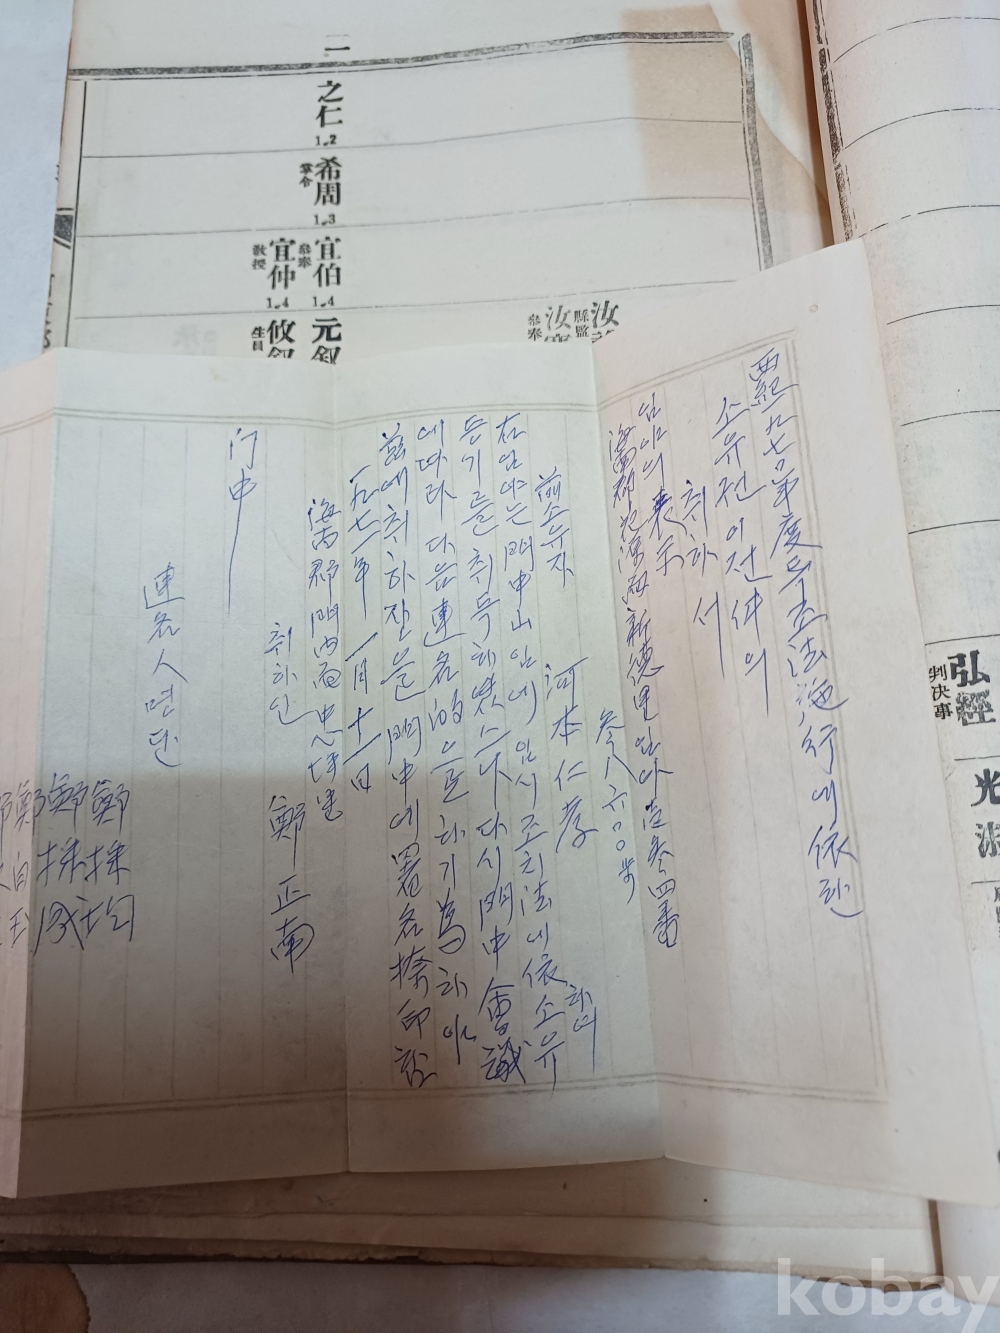 二
之仁
1.2
希周
掌令
1.3
宜伯
叅奉
1.4
宜仲
教授
1.4
元
攸
生員
汝
縣監
汝
叅奉
弘經
判决事
光
西紀一九七0年度특조法施行에依한
소유권이전件의
취하서
임야의表示
海南郡花源面新德里임야壹參四番
參八六00步
前소유자 河本仁孝
右임야는門中山임에임시조치法에依하여소유
등기를취득하였스나다시門中會議
에따라다음連名的을하기爲하야
玆에취하전을門中에署名捺印함
一九七一年一月十一日
海南郡門內面忠坪里
취하인 鄭正南
门中
連名人명단
鄭採均
鄭採成
鄭
kobay